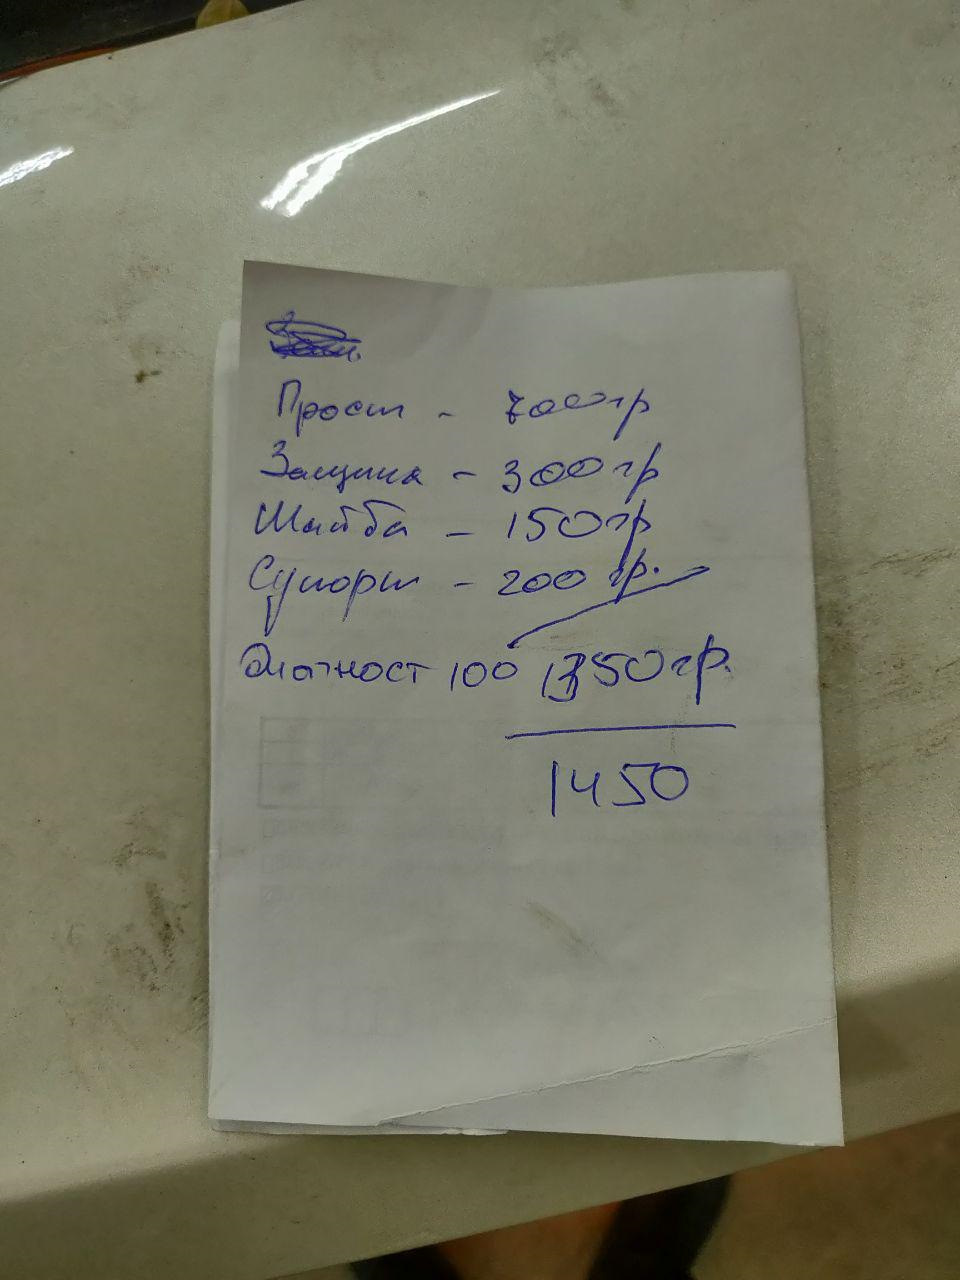 Прост - 700гр
Защита - 300гр
Шайба - 150гр
Супорт - 200гр.
Диагност 100 1350гр.
1450